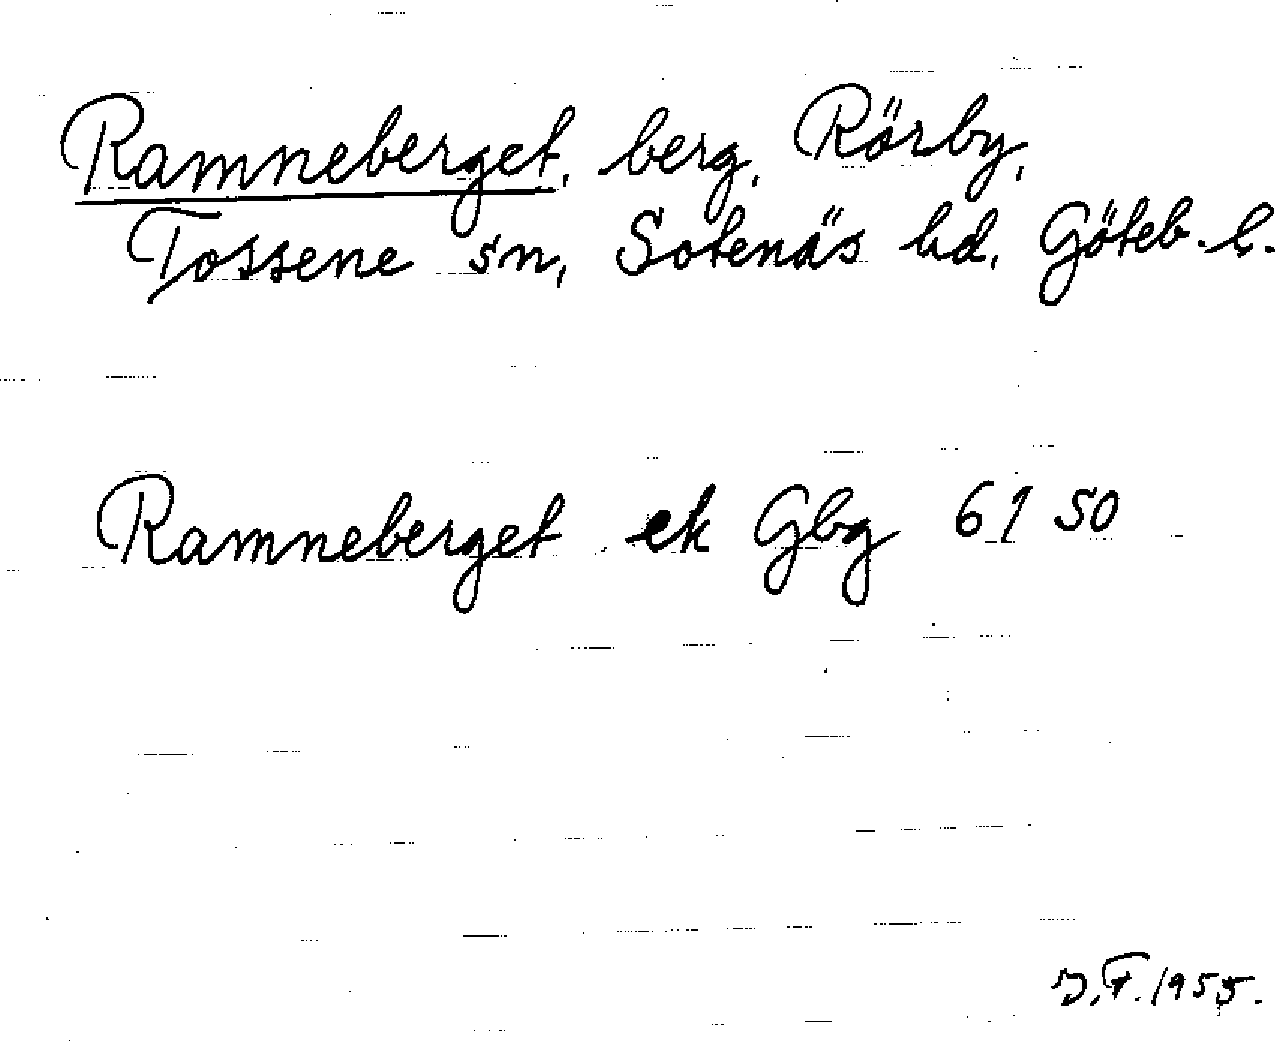 Ramneberget, berg, Rörby,
Tossene sn, Sotenäs hd, Göteb. l.
Ramneberget ek Gbg 61 50
D.F. 1955.